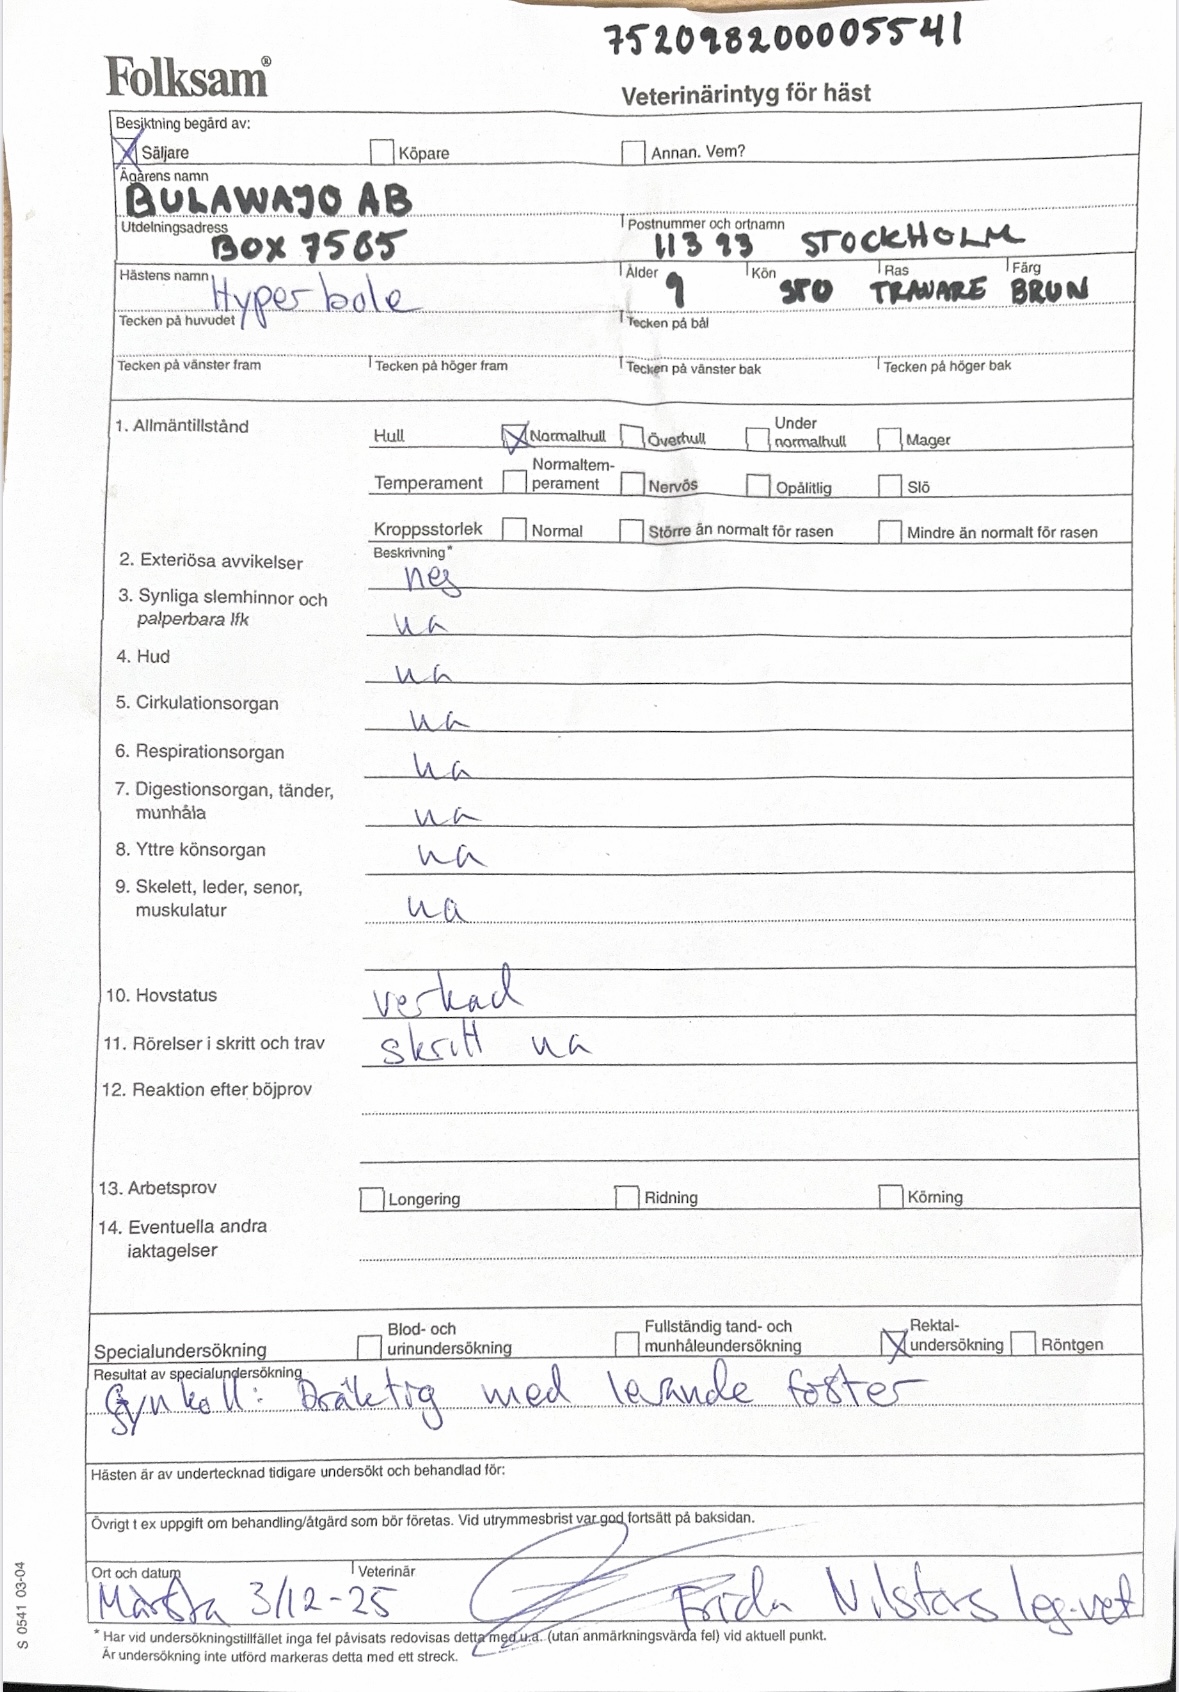 752098200005541
Folksam®
Veterinärintyg för häst
Besiktning begärd av:
Säljare Köpare Annan. Vem?
Ägarens namn
BULAWAJO AB
Utdelningsadress Postnummer och ortnamn
BOX 7565 113 93 STOCKHOLM
Hästens namn Ålder Kön Ras Färg
Hyperbole 9 STO TRAVARE BRUN
Tecken på huvudet Tecken på bål
Tecken på vänster fram Tecken på höger fram Tecken på vänster bak Tecken på höger bak
1. Allmäntillstånd
Hull Normalhull Överhull Under normalhull Mager
Temperament Normaltem-perament Nervös Opålitlig Slö
Kroppsstorlek Normal Större än normalt för rasen Mindre än normalt för rasen
Beskrivning*
2. Exteriösa avvikelser nej
3. Synliga slemhinnor och
palperbara lfk ua
4. Hud ua
5. Cirkulationsorgan ua
6. Respirationsorgan ua
7. Digestionsorgan, tänder,
munhåla ua
8. Yttre könsorgan ua
9. Skelett, leder, senor,
muskulatur ua
10. Hovstatus verkad
11. Rörelser i skritt och trav skritt ua
12. Reaktion efter böjprov
13. Arbetsprov Longering Ridning Körning
14. Eventuella andra
iaktagelser
Specialundersökning Blod- och urinundersökning Fullständig tand- och munhåleundersökning Rektal-undersökning Röntgen
Resultat av specialundersökning
Gynkoll: Dräktig med levande foster
Hästen är av undertecknad tidigare undersökt och behandlad för:
Övrigt t ex uppgift om behandling/åtgärd som bör företas. Vid utrymmesbrist var god fortsätt på baksidan.
Ort och datum Veterinär
Märsta 3/12-25 Frida Nilsfors leg.vet
* Har vid undersökningstillfället inga fel påvisats redovisas detta med u.a. (utan anmärkningsvärda fel) vid aktuell punkt.
Är undersökning inte utförd markeras detta med ett streck.
S 0541 03-04